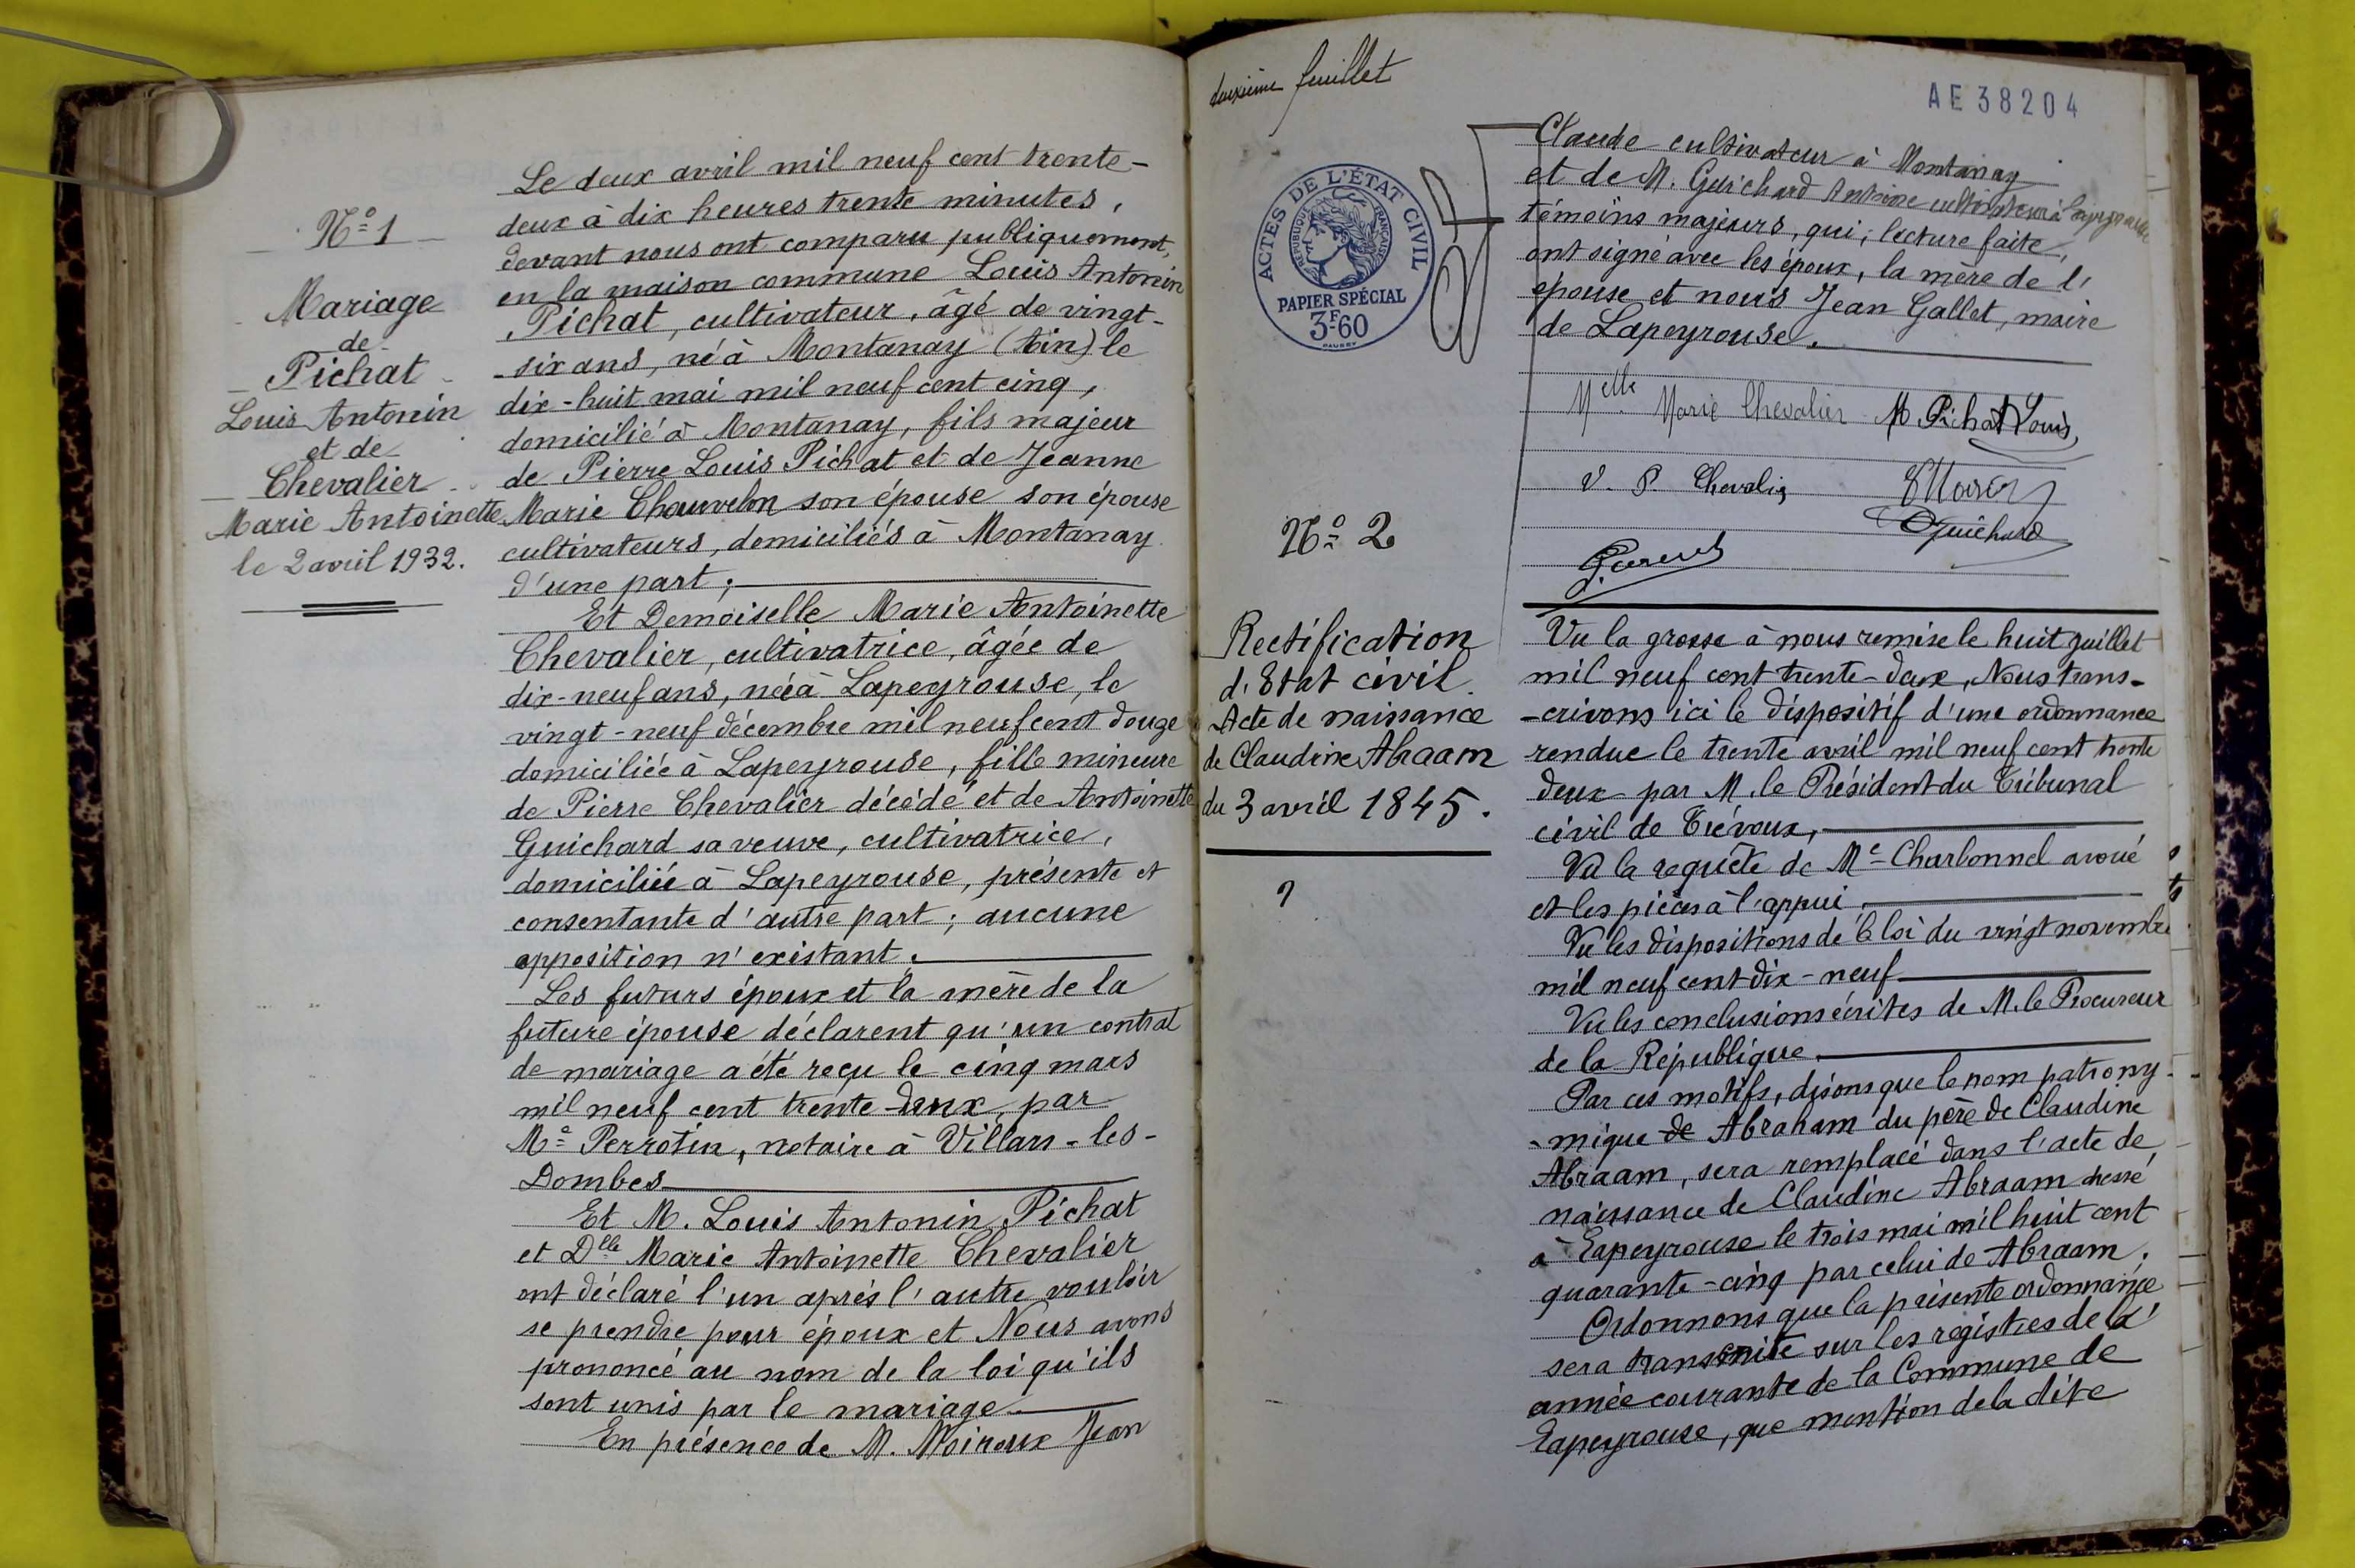 N° 1
Mariage
de
Pichat
Louis Antonin
et de
Chevalier
Marie Antoinette
le 2 avril 1932.
Le deux avril mil neuf cent trente-
deux à dix heures trente minutes,
devant nous ont comparu publiquement,
en la maison commune Louis Antonin
Pichat, cultivateur, âgé de vingt-
-six ans, né à Montanay (Ain) le
dix-huit mai mil neuf cent cinq,
domicilié à Montanay, fils majeur
de Pierre Louis Pichat et de Jeanne
Marie Chauvelon son épouse son épouse
cultivateurs, domiciliés à Montanay
d'une part;
Et Demoiselle Marie Antoinette
Chevalier, cultivatrice, âgée de
dix-neuf ans, née à Lapeyrouse, le
vingt-neuf décembre mil neuf cent douze
domiciliée à Lapeyrouse, fille mineure
de Pierre Chevalier décédé et de Antoinette
Guichard sa veuve, cultivatrice,
domiciliée à Lapeyrouse, présente et
consentante d'autre part; aucune
opposition n'existant.
Les futurs époux et la mère de la
future épouse déclarent qu'un contrat
de mariage a été reçu le cinq mars
mil neuf cent trente-deux, par
Me Perrotin, notaire à Villars-les-
Dombes
Et M. Louis Antonin Pichat
et Dlle Marie Antoinette Chevalier
ont déclaré l'un après l'autre vouloir
se prendre pour époux et Nous avons
prononcé au nom de la loi qu'ils
sont unis par le mariage
En présence de M. Moiroux Jean
deuxième feuillet
AE 38204
ACTES DE L'ÉTAT CIVIL
RÉPUBLIQUE FRANÇAISE
PAPIER SPÉCIAL
3F60
Claude cultivateur à Montanay
et de M. Guichard Antoine cultivateur à Lapeyrouse
témoins majeurs, qui, lecture faite,
ont signé avec les époux, la mère de l'
épouse et nous Jean Gallet, maire
de Lapeyrouse.
Melle Marie Chevalier M. Pichat Louis
V. P. Chevalier
Guichard
N° 2
Rectification
d'Etat civil
Acte de naissance
de Claudine Abraam
du 3 avril 1845.
?
Vu la grosse à nous remise le huit juillet
mil neuf cent trente-deux, Nous trans-
-crivons ici le dispositif d'une ordonnance
rendue le trente avril mil neuf cent trente
deux par M. le Président du Tribunal
civil de Trévoux,
Vu la requête de Me Charbonnel avoué
et les pièces à l'appui
Vu les dispositions de la loi du vingt novembre
mil neuf cent dix-neuf
Vu les conclusions écrites de M. le Procureur
de la République
Par ces motifs, disons que le nom patrony-
-mique de Abraham du père de Claudine
Abraam, sera remplacé dans l'acte de
naissance de Claudine Abraam dressé
à Lapeyrouse le trois mai mil huit cent
quarante-cinq par celui de Abraam.
Ordonnons que la présente ordonnance
sera transcrite sur les registres de l'
année courante de la Commune de
Lapeyrouse, que mention de la dite